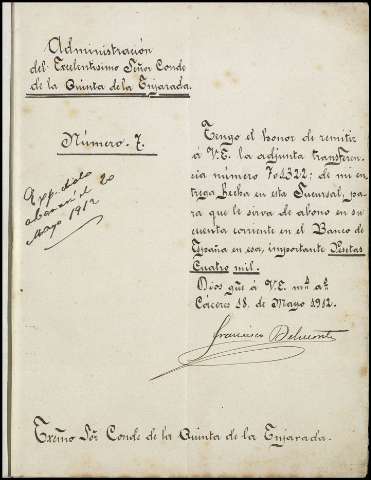 Administración
del Excelentisimo Señor Conde
de la Quinta de la Enjarada.
Número. 7.
20
Mayo 1912
Tengo el honor de remitir
á V.E. la adjunta transferen-
cia número 704322; de mi en-
trega hecha en esta Sucursal, pa-
ra que le sirva de abono en su
cuenta corriente en el Banco de
España en esa, importante Pesetas
Cuatro mil.
Dios gūe á V.E. m.s a.s
Cáceres 18. de Mayo 1912.
Francisco Belmonte
Exc̄mo Sōr Conde de la Quinta de la Enjarada.